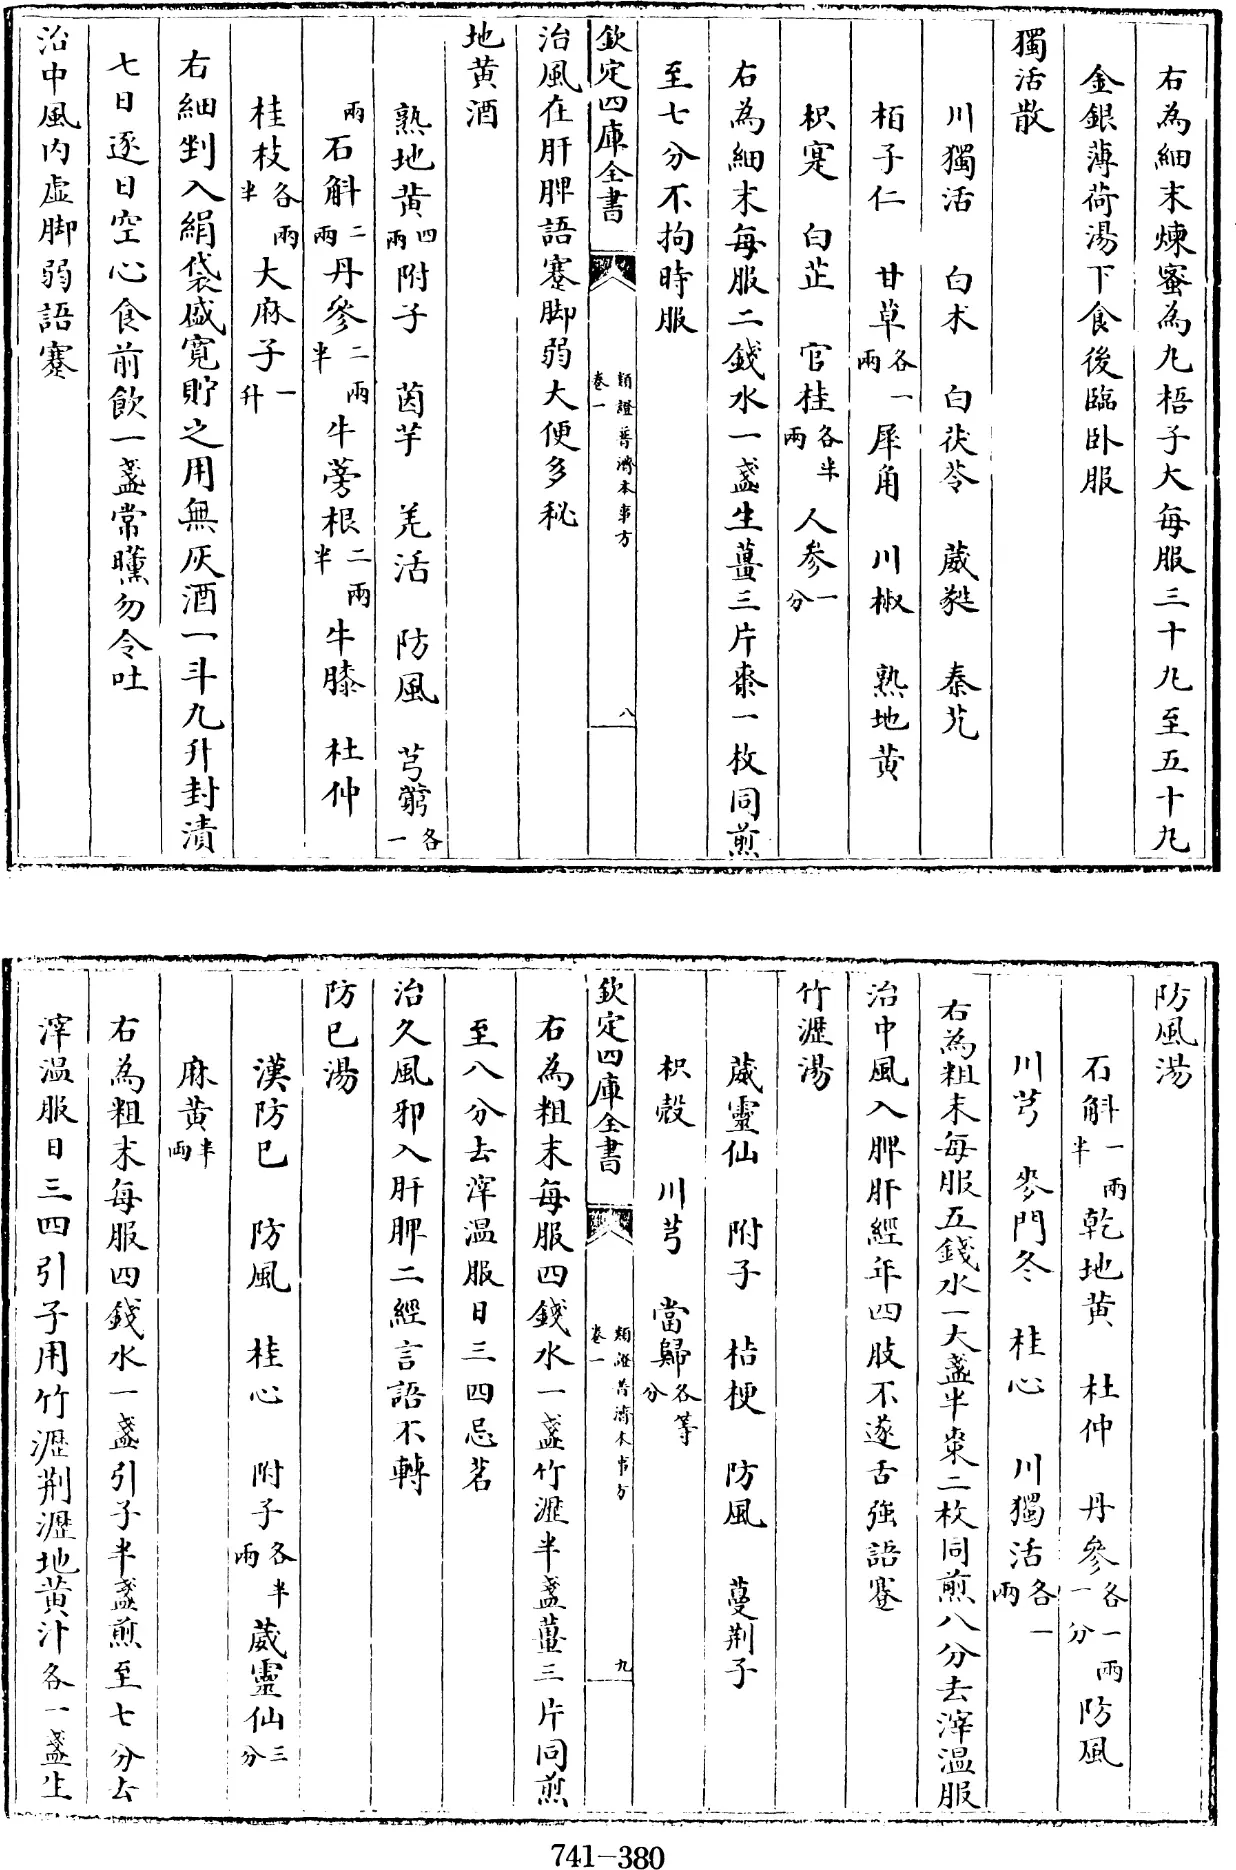 右為細末煉蜜為丸梧子大每服三十丸至五十丸
金銀薄荷湯下食後臨卧服
獨活散
川獨活　白朮　白茯苓　葳蕤　秦艽
栢子仁　甘草各一兩　犀角　川椒　熟地黄
枳實　白芷　官桂各半兩　人參一分
右為細末每服二錢水一盞生薑三片棗一枚同煎
至七分不拘時服
欽定四庫全書　類證普濟本事方卷一　八
治風在肝脾語蹇脚弱大便多秘
地黄酒
熟地黄四兩附子　茵芋　羌活　防風　芎藭各一
兩石斛二兩丹參二兩半牛蒡根二兩半牛膝　杜仲
桂枝各半兩大麻子一升
右細剉入絹袋盛寛貯之用無灰酒一斗九升封漬
七日逐日空心食前飲一盞常醺勿令吐
治中風内虚脚弱語蹇
防風湯
石斛一兩半乾地黄　杜仲　丹參各一兩一分防風
川芎　麥門冬　桂心　川獨活各一兩
右為粗末每服五錢水一大盞半棗二枚同煎八分去滓温服
治中風入脾肝經年四肢不遂舌強語蹇
竹瀝湯
葳靈仙　附子　桔梗　防風　蔓荆子
枳殻　川芎　當歸各等分
欽定四庫全書　類證普濟本事方卷一　九
右為粗末每服四錢水一盞竹瀝半盞薑三片同煎
至八分去滓温服日三四忌茗
治久風邪入肝脾二經言語不轉
防已湯
漢防已　防風　桂心　附子各半兩葳靈仙三分
麻黄半兩
右為粗末每服四錢水一盞引子半盞煎至七分去
滓温服日三四引子用竹瀝荆瀝地黄汁各一盞生
741-380